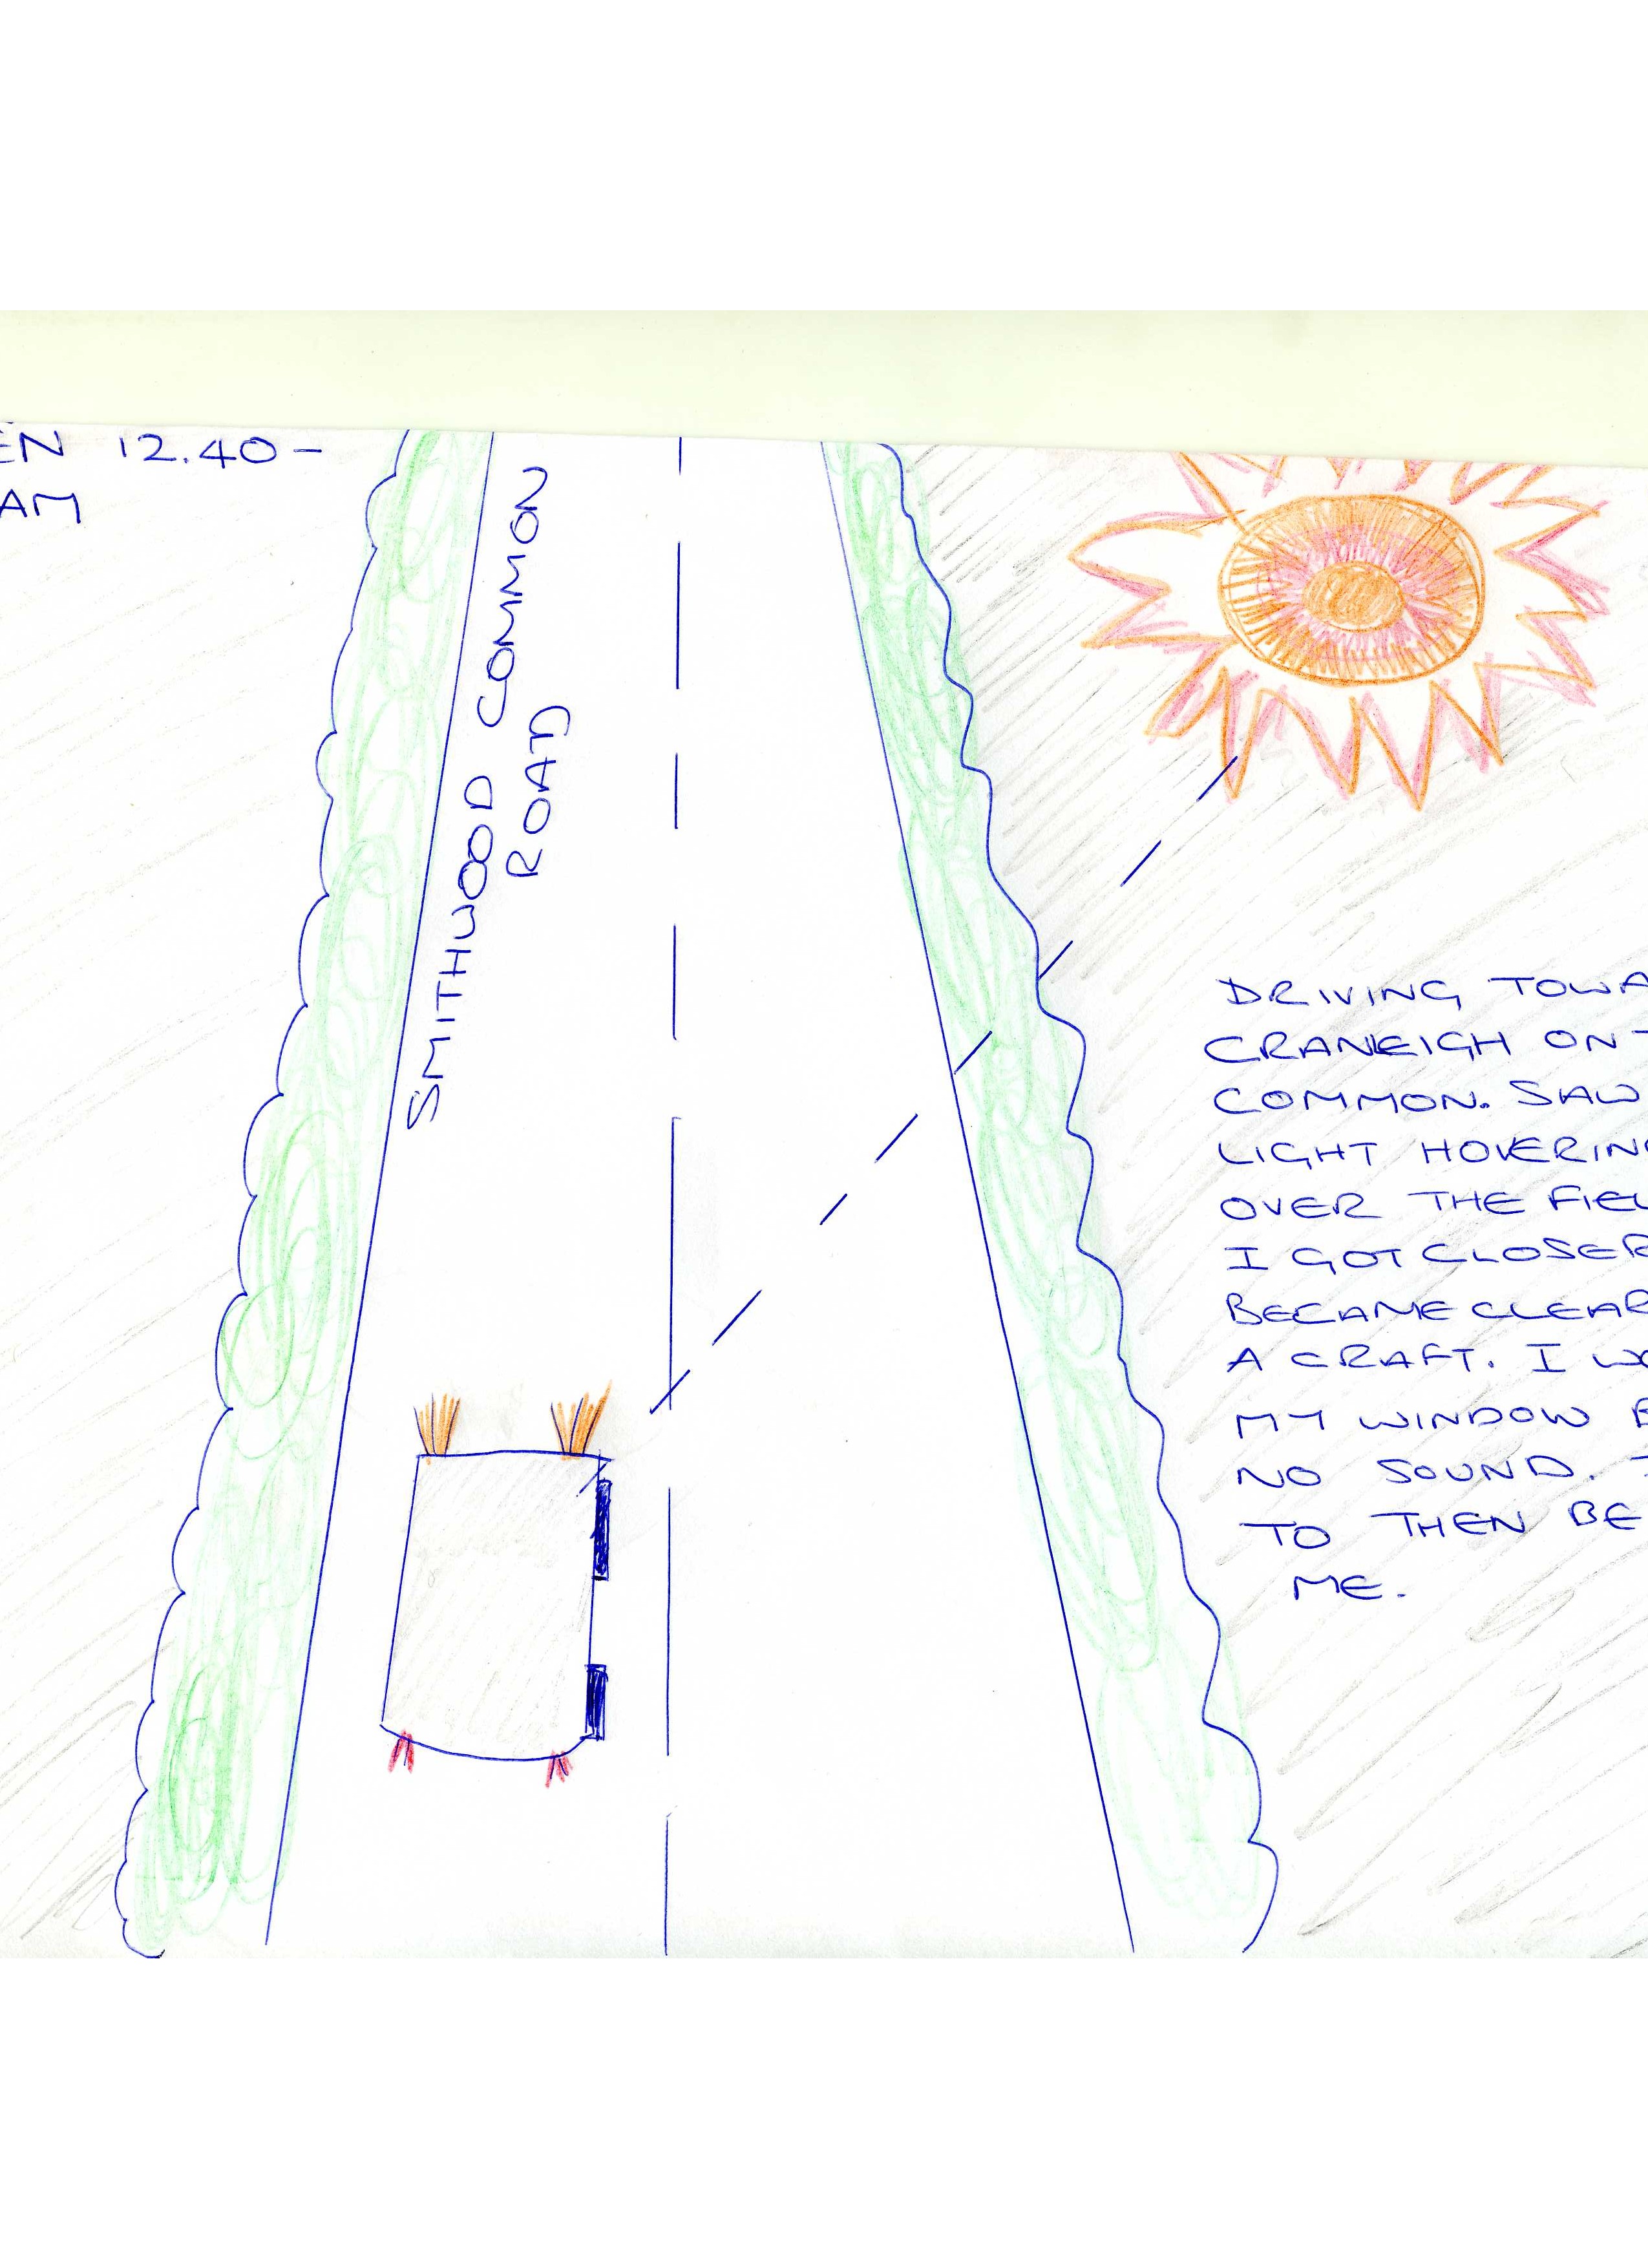 EN 12.40-
AM
SMITHWOOD COMMON
ROAD
DRIVING TOWA
CRANLEIGH ON T
COMMON. SAW
LIGHT HOVERING
OVER THE FIEL
I GOT CLOSER
BECAME CLEAR
A CRAFT. I WO
MY WINDOW B
NO SOUND.
TO THEN BE
ME.